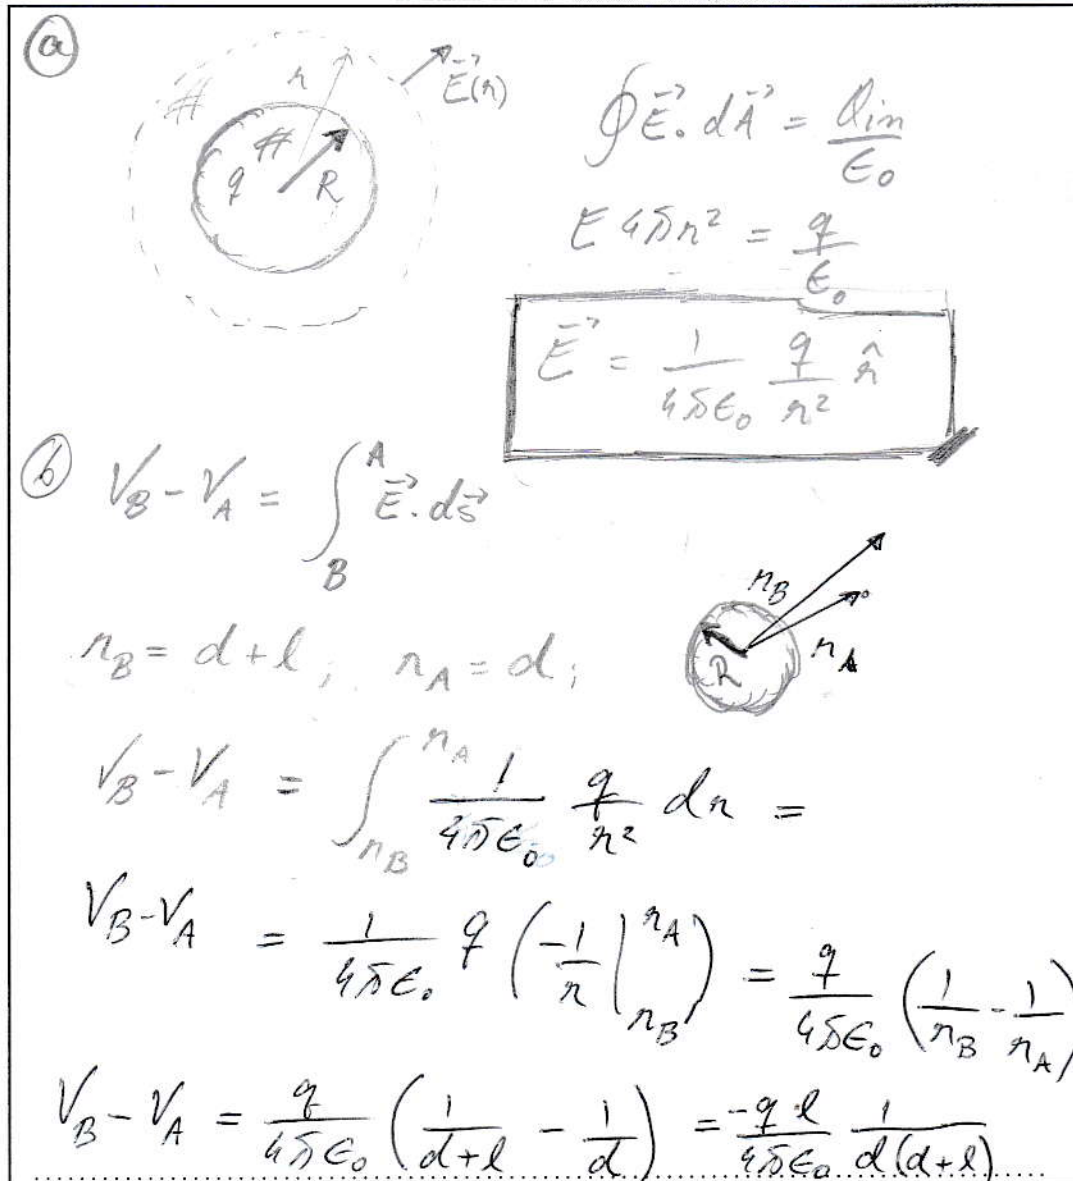 a
r
E⃗(r)
q
R
∮E⃗. dA⃗ = Qin/ϵ₀
E 4πr² = q/ϵ₀
E⃗ = 1/4πϵ₀ q/r² r̂
b
V_B - V_A = ∫_B^A E⃗. ds⃗
r_B
r_A
R
r_B = d + l ; r_A = d ;
V_B - V_A = ∫_{r_B}^{r_A} 1/4πϵ₀ q/r² dr =
V_B - V_A = 1/4πϵ₀ q (-1/r |_{r_B}^{r_A}) = q/4πϵ₀ (1/r_B - 1/r_A)
V_B - V_A = q/4πϵ₀ (1/d+l - 1/d) = -q l/4πϵ₀ 1/d(d+l)